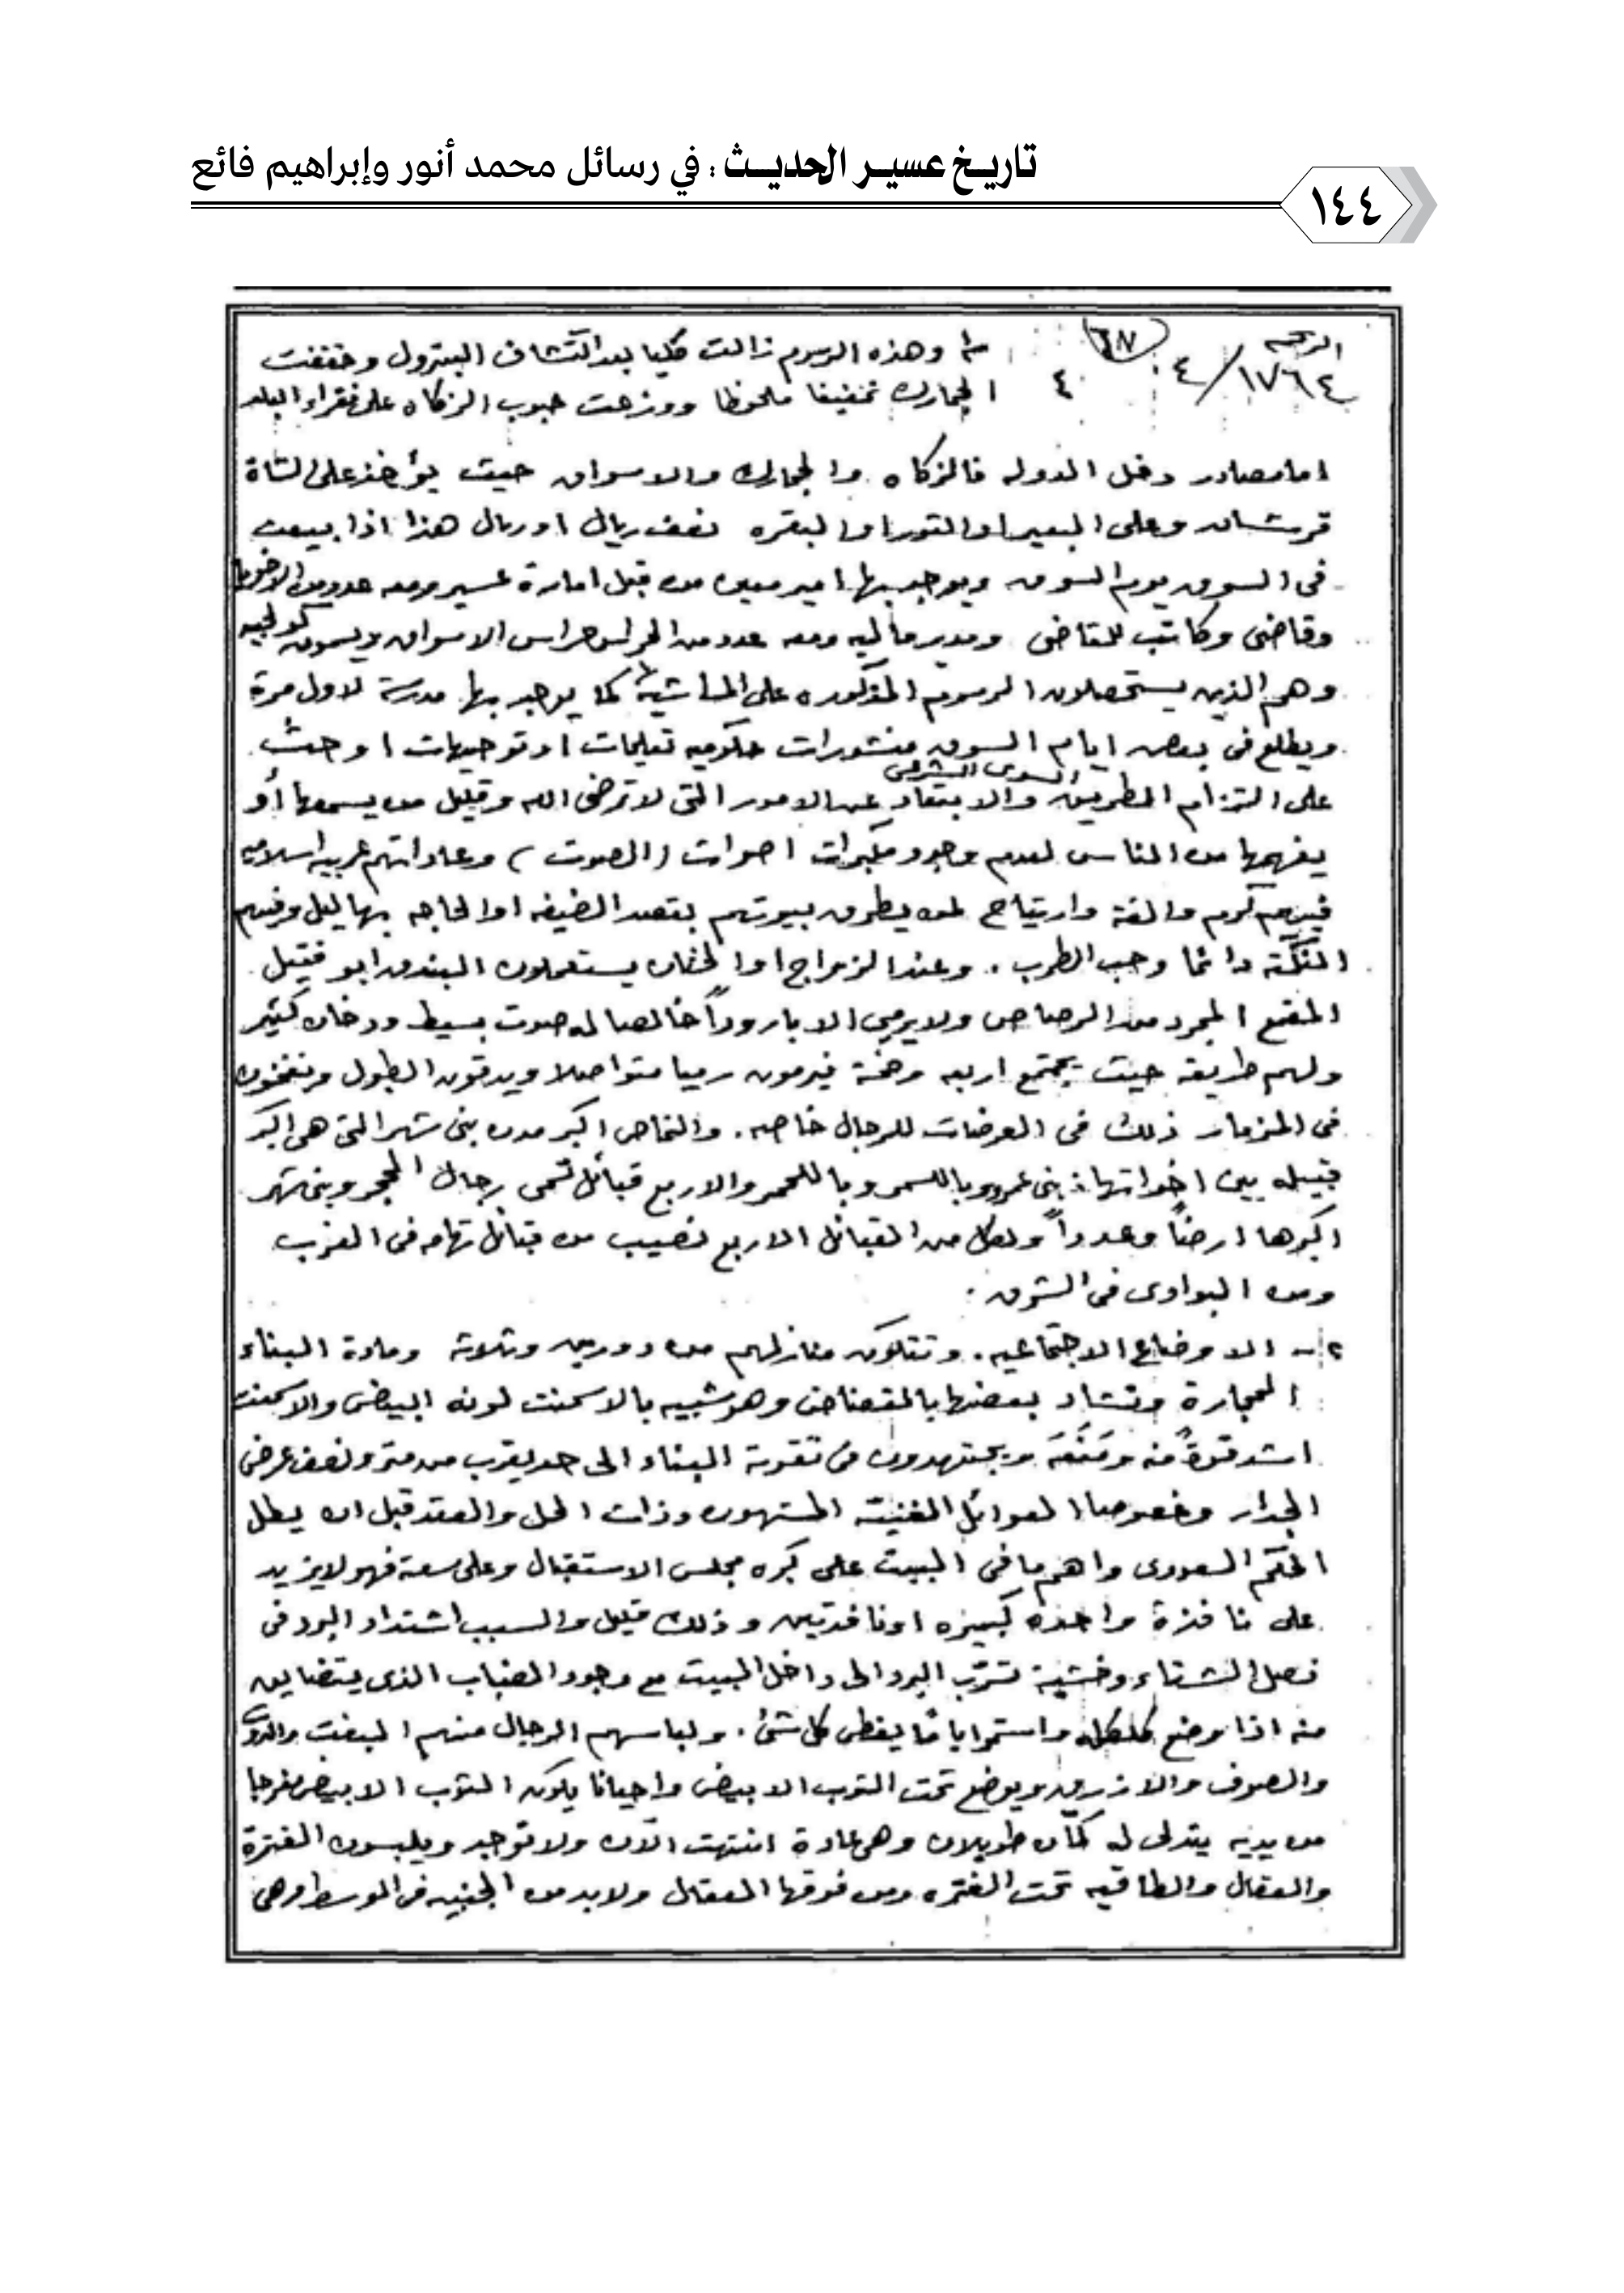 تاريخ عسير الحديث : في رسائل محمد أنور وإبراهيم فائع
١٤٤
١٧٦٤ / ٤
٤
وهذه الرسوم زالت كليا بعد اكتشاف البترول وخففت
الجمارك تخفيفا ملحوظا ووزعت حبوب الزكاه على فقراء البلد
اما مصادر دخل الدوله فالزكاه والجمارك والاسواق حيث يؤخذ على الشاة
قرشان وعلى البعير او الثور او البقره نصف ريال او ريال هذا اذا بيعت
فى السوق يوم السوق ويوجد بها امير معين من قبل امارة عسير ومعه عدد من الاخويا
وقاضى وكاتب للقاضى ومدير ماليه ومعه عدد من الحراس حراس الاسواق ويسمون كولجيه
وهم الذين يستحصلون الرسوم المذكوره على الماشيه كما يوجد بها مدرسة لاول مرة
ويطلع فى بعض ايام السوق منشورات حكوميه تعليمات او توجيهات او حث
على التزام الطريق السوى الشرعى والابتعاد عن الامور التى لا ترضى الله وقليل من يسمعها أو
يفهمها من الناس لعدم وجود مكبرات اصوات (الصوت) وعاداتهم عربيه اسلاميه
فيهم كرم والفة وارتياح لمن يطرق بيوتهم بقصد الضيفه او الحاجه بها ليل وفيهم
النكتة دائما وحب الطرب . وعند الزواج او الختان يستعملون البندق ابو فتيل
المقمع المجرد من الرصاص ولا يرمى الا باروداً خالصا له صوت بسيط ودخان كثير
ولهم طريقه حيث يجتمع اربعه وخمسة فيرمون رميا متواصلا ويدقون الطبول وينفخون
فى المزمار ذلك فى العرضات للرجال خاصه . والنماص اكبر مدن بنى شهر التى هى اكبر
قبيله بين اخواتها : بنى عمرو وباللسمر وباللحمر والاربع قبائل تسمى رجال الحجر وبنى شهر
اكبرها ارضاً وعدداً ولكل من القبائل الاربع نصيب من قبائل تهامه فى الغرب
ومن البوادى فى الشرق .
٢- الاوضاع الاجتماعيه . وتتكون منازلهم من دورين وثلاثة ومادة البناء
الحجارة وتشاد بعضها بالقضاض وهو شبيه بالاسمنت لونه ابيض والاسمنت
اشد قوةً منه ومَنَعَة ويجتهدون فى تقوية البناء الى حد يقرب من متر ونصف عرض
الجدار وخصوصا العوائل الغنية المشهوره وذات الحل والعقد قبل ان يطل
الحكم السعودى واهم ما فى البيت على كبره مجلس الاستقبال وعلى سعة فهو لا يزيد
على نافذة واحده كبيره او نافذتين وذلك قليل والسبب اشتداد البرد فى
فصل الشتاء وخشية تسرّب البرد الى داخل البيت مع وجود الضباب الذى يتضايق
منه اذا وضع كلكله واستمر اياماً يغطى كل شئ . ولباسهم الرجال منهم البفت والدوت
والصوف والازرق ويوضع تحت الثوب الابيض واحيانا يكون الثوب الابيض مفرجا
من يديه يتدلى له كمّان طويلان وهى عادة انتهت الآن ولا توجد ويلبسون الغترة
والعقال والطاقيه تحت الغتره ومن فوقها العقال ولابد من الجنبيه فى الوسط وهى